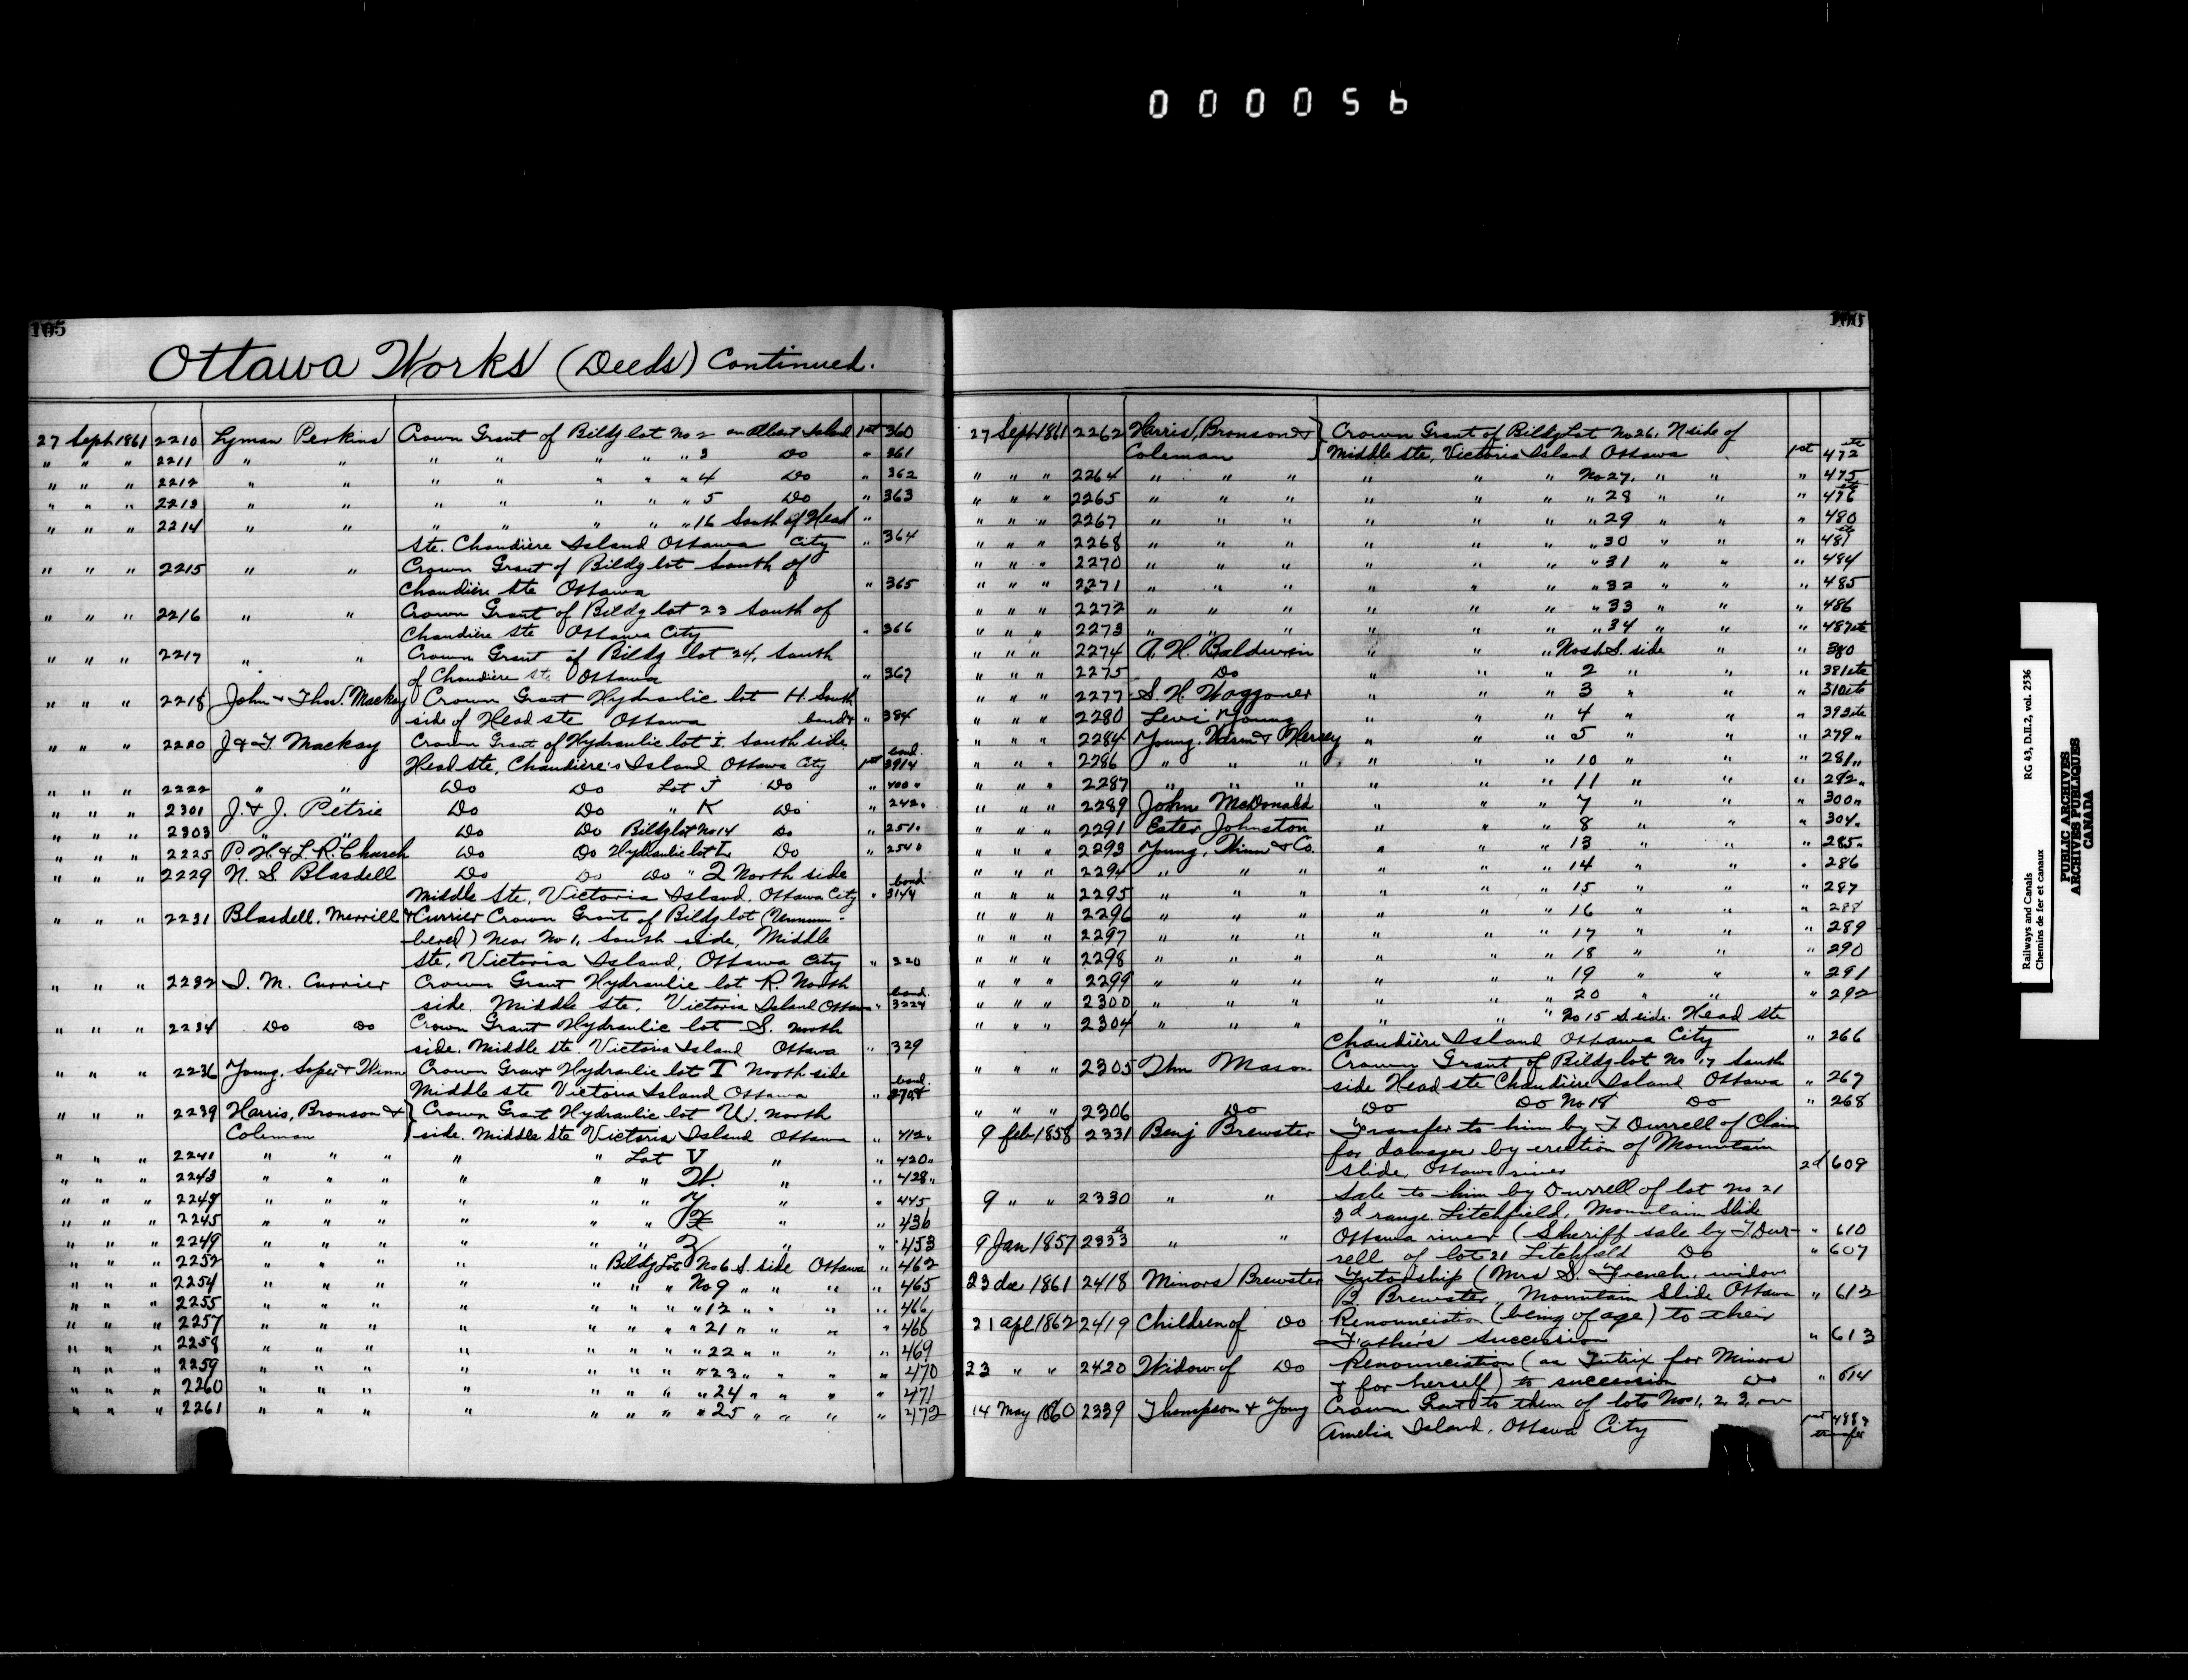 000056
105
Ottawa Works (Deeds) Continued.
27 Sept 1861 2210 Lyman Perkins Crown Grant of Bildg lot No 2 on Albert Island 1st 360
" " " 2211 " " " " " " " 3 Do " 361
" " " 2212 " " " " " " " 4 Do " 362
" " " 2213 " " " " " " " 5 Do " 363
" " " 2214 " " " " " " " 16 South of Head "
Ste. Chaudière Island Ottawa City " 364
" " " 2215 " " Crown Grant of Bildg lot South of
Chaudière Ste Ottawa " 365
" " " 2216 " " Crown Grant of Bildg lot 23 South of
Chaudière Ste Ottawa City " 366
" " " 2217 " " Crown Grant of Bildg lot 24, South
of Chaudière Ste Ottawa " 367
" " " 2218 John & Thos. Mackay Crown Grant Hydraulic lot H. South
side of Head ste Ottawa bond & " 384
" " " 2220 J & T Mackay Crown Grant of Hydraulic lot I. South side
Head ste, Chaudière's Island Ottawa City 1st bond.
" " " 2222 " " Do Do Lot J Do " 400 "
" " " 2301 J. & J. Petrie Do Do " K Do " 242"
" " " 2303 " " Do Do Bildg lot No 14 Do " 251"
" " " 2225 P. H. & L. R. Church Do Do Hydraulic lot L Do "
" " " 2229 N. S. Blasdell Do Do Do " Q North side
Middle Ste, Victoria Island, Ottawa City " bond
" " " 2231 Blasdell, Merrill & Currier Crown Grant of Bildg lot (Unnum-
bered) near No 1, South side, Middle
Ste, Victoria Island, Ottawa City " 320
" " " 2232 I. M. Currier Crown Grant Hydraulic lot R. North
side. Middle ste. Victoria Island Ottawa " bond.
" " " 2234 Do Do Crown Grant Hydraulic lot S. North
side. Middle ste. Victoria Island Ottawa " 329
" " " 2236 Young, Soper & Winn Crown Grant Hydraulic lot T North side
Middle ste Victoria Island Ottawa " bond.
" " " 2239 Harris, Bronson & Crown Grant Hydraulic lot U. North
Coleman side. Middle Ste Victoria Island Ottawa " 412"
" " " 2241 " " " " " Lot V " " 420"
" " " 2243 " " " " " " W. " " 428"
" " " 2247 " " " " " " Y " " 445
" " " 2245 " " " " " " X " " 436
" " " 2249 " " " " " " Z " " 453
" " " 2252 " " " " " Bildg Lot No 6 S. side Ottawa " 462
" " " 2254 " " " " " " " No 9 " " " " 465
" " " 2255 " " " " " " " " 12 " " " " 466
" " " 2257 " " " " " " " " 21 " " " " 468
" " " 2258 " " " " " " " " 22 " " " " 469
" " " 2259 " " " " " " " " 23 " " " " 470
" " " 2260 " " " " " " " " 24 " " " " 471
" " " 2261 " " " " " " " " 25 " " " " 472
27 Sept 1861 2262 Harris, Bronson & Crown Grant of Bildg Lot No 26, N side of
Coleman Middle ste, Victoria Island Ottawa 1st 472 etc
" " " 2264 " " " " " " No 27, " " " 475
" " " 2265 " " " " " " " 28 " " " 476 etc
" " " 2267 " " " " " " " 29 " " " 480
" " " 2268 " " " " " " " 30 " " " 481 etc
" " " 2270 " " " " " " " 31 " " " 484
" " " 2271 " " " " " " " 32 " " " 485
" " " 2272 " " " " " " " 33 " " " 486
" " " 2273 " " " " " " " 34 " " " 487 etc
" " " 2274 A. H. Baldwin " " " No 1 S. side " " 380
" " " 2275 Do " " " 2 " " " 381 etc
" " " 2277 S. H. Waggoner " " " 3 " " " 310 etc
" " " 2280 Levi Young " " " 4 " " " 393 etc
" " " 2284 Young, Winn & Hersey " " " 5 " " " 279 "
" " " 2286 " " " " " " 10 " " " 281 "
" " " 2287 " " " " " " 11 " " " 282 "
" " " 2289 John McDonald " " " 7 " " " 300 "
" " " 2291 Ester Johnston " " " 8 " " " 304 "
" " " 2293 Young, Winn & Co. " " " 13 " " " 285 "
" " " 2294 " " " " " " 14 " " " 286
" " " 2295 " " " " " " 15 " " " 287
" " " 2296 " " " " " " 16 " " " 288
" " " 2297 " " " " " " 17 " " " 289
" " " 2298 " " " " " " 18 " " " 290
" " " 2299 " " " " " " 19 " " " 291
" " " 2300 " " " " " " 20 " " " 292
" " " 2304 " " " " " " No 15 S. side. Head ste
Chaudière Island Ottawa City " 266
" " " 2305 Thm Mason Crown Grant of Bildg lot No 17 South
side Head ste Chaudière Island Ottawa " 267
" " " 2306 Do Do Do No 18 Do " 268
9 feb 1858 2331 Benj Brewster Transfer to him by T Durrell of Claim
for damages by erection of Mountain
Slide, Ottawa river 2d 609
9 " " 2330 " " Sale to him by Durrell of lot No 21
3d range. Litchfield, Mountain Slide
Ottawa river (Sheriff sale by T. Dur- " 610
9 Jan 1857 2333 " " rell of lot 21 Litchfield Do " 607
23 dec 1861 2418 Minors Brewster Tutorship (Mrs S. French, widow
B. Brewster, Mountain Slide Ottawa " 612
21 apl 1862 2419 Children of Do Renounciation (being of age) to their
Father's succession " 613
23 " " 2420 Widow of Do Renounciation (as Tutrix for Minors
& for herself) to succession Do " 614
14 May 1860 2339 Thompson & Young Crown Grant to them of lots Nos 1, 2, 3, on
Amelia Island, Ottawa City 1st transfer
RG 43, D.II.2, vol. 2536
Railways and Canals
Chemins de fer et canaux
PUBLIC ARCHIVES
ARCHIVES PUBLIQUES
CANADA